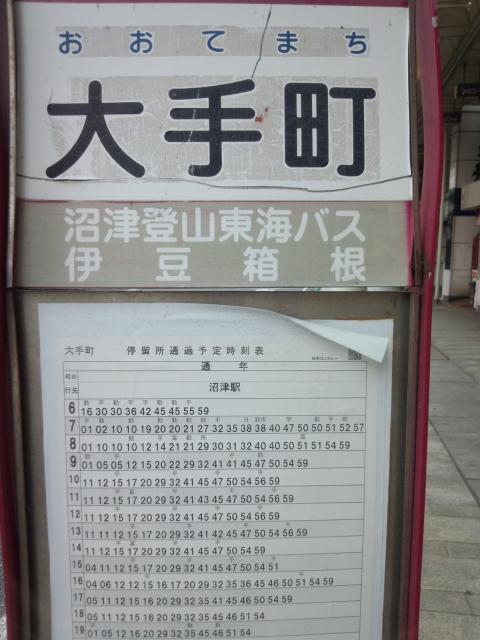 おおてまち
大手町
沼津登山東海バス
伊豆箱根
大手町 停留所通過予定時刻表
通年
経由
行先 沼津駅
6 16 30 30 36 42 45 45 55 59
7 01 02 10 10 19 20 20 21 27 32 35 38 38 40 47 50 50 51 52 57
8 01 10 10 10 12 14 21 21 29 30 31 32 40 40 50 51 51 54 59
9 01 05 05 12 15 20 22 29 32 41 41 45 47 50 54 59
10 11 11 12 15 17 20 29 32 41 45 47 50 54 56 59
11 11 12 15 17 20 29 32 41 43 45 47 50 54 56 59
12 11 12 15 17 20 29 32 41 45 47 50 54 56 59
13 11 12 15 17 20 29 32 41 42 45 47 50 54 56 59
14 11 12 15 17 20 29 32 41 45 47 50 54 59
15 04 11 12 15 17 20 29 32 41 45 47 50 54 51
16 04 06 12 12 15 16 17 20 29 32 35 36 45 46 50 51 54 59
17 05 11 12 15 16 20 29 32 35 41 45 46 47 50 54 59
18 05 11 12 15 16 20 29 32 35 45 46 51 54
19 05 11 12 15 16 20 29 32 35 46 51 54